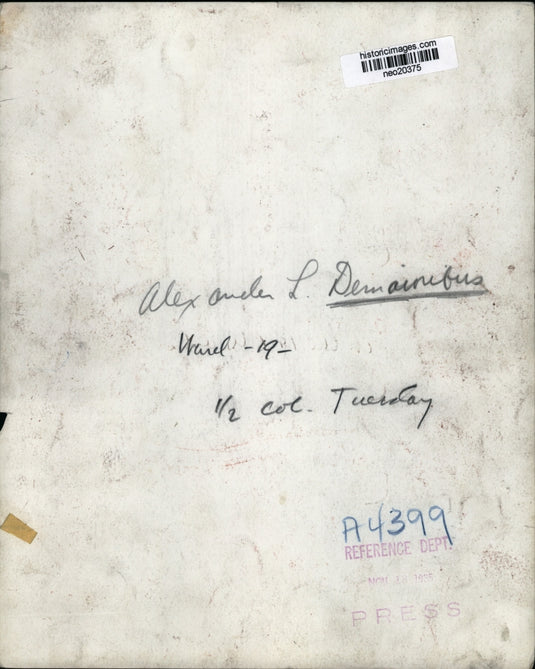 historicimages.com
neo20375
Alexander L. Demaioribus
Ward -19-
1/2 col. Tuesday
A4399
REFERENCE DEPT.
PRESS